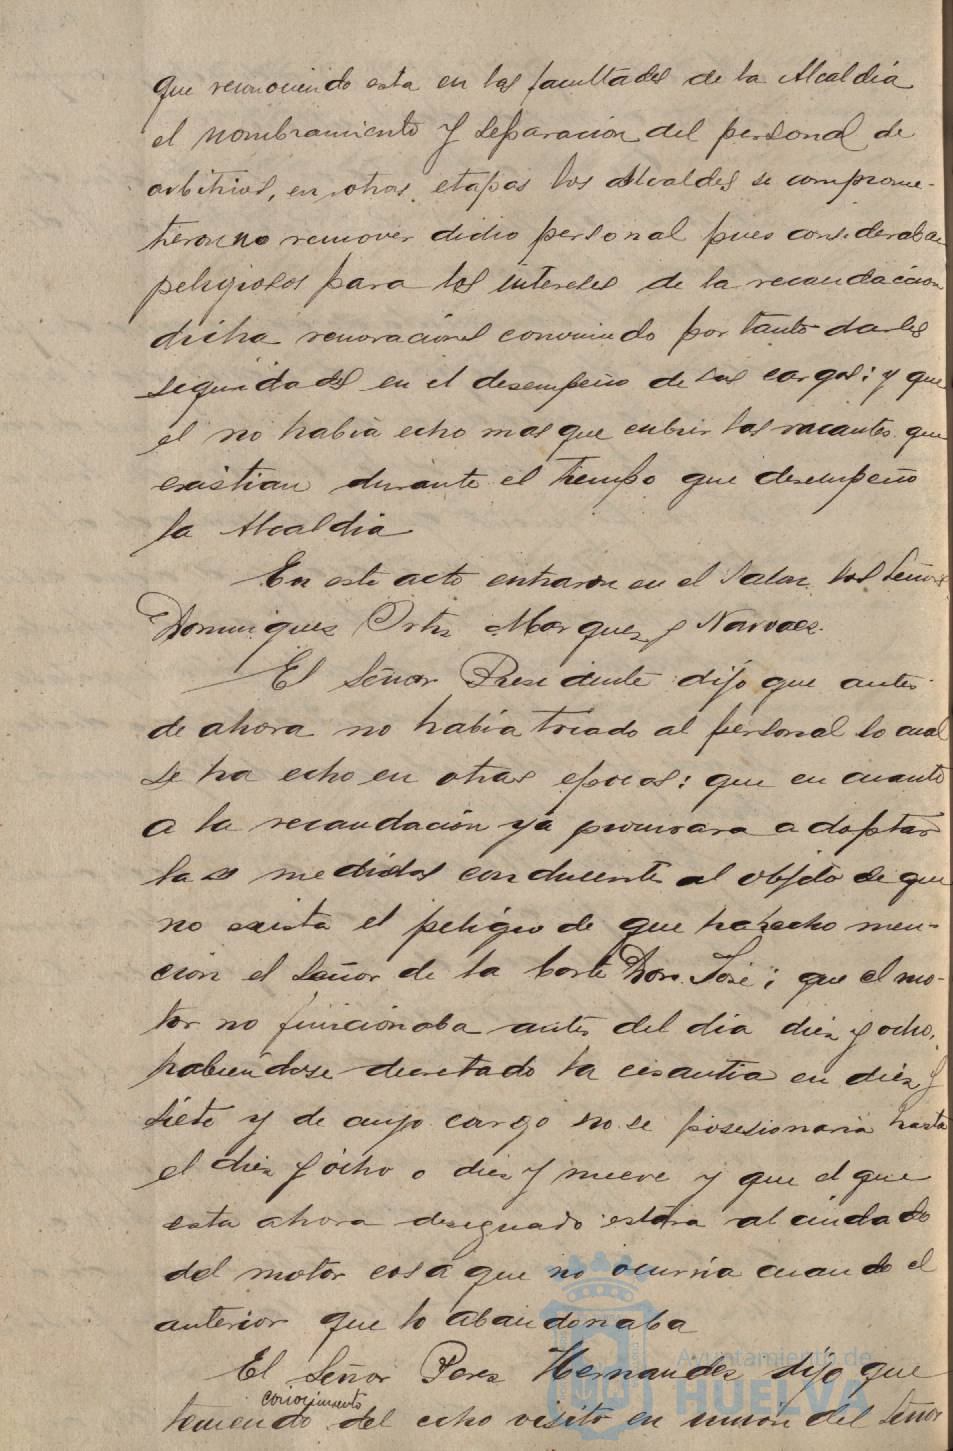 que reconociendo esta en las facultades de la Alcaldia
el nombramiento y separacion del personal de
arbitrios, en otras etapas los Alcaldes se comprome-
tieron no remover dicho personal pues consideraban
peligrosos para los intereses de la recaudación
dicha renovaciones conviniendo por tanto darles
seguridades en el desempeño de sus cargos: y que
el no habia echo mas que cubrir las vacantes que
existian durante el tiempo que desempeño
la Alcaldia
En este acto entraron en el Salon los Señores
Dominguez Ortiz Marquez y Narvaez.
El Señor Presidente dijo que antes
de ahora no habia tocado al personal lo cual
se ha echo en otras epocas: que en cuanto
a la recaudación ya procurara adoptar
las medidas conducente al objeto de que
no exista el peligro de que ha echo men-
cion el Señor de la Corte Don José; que el mo-
tor no funcionaba antes del dia diez y ocho,
habiendose decretado la cesantia en diez y
siete y de cuyo cargo no se posesionaria hasta
el diez y ocho o diez y nueve y que el que
esta ahora designado estara al cuidado
del motor cosa que no ocurria cuando el
anterior que lo abandonaba
El Señor Perez Hernandez dijo que
teniendo conocimiento del echo visito en union del Señor
Ayuntamiento de
HUELVA